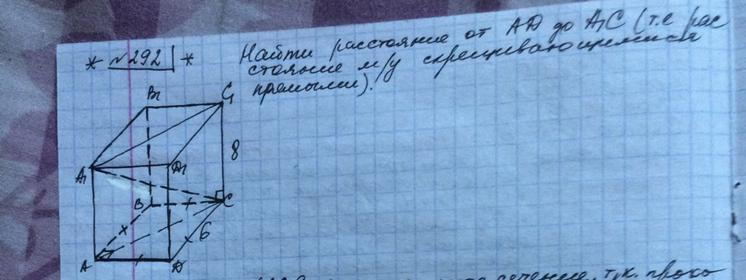 * №292 *
Найти расстояние от АD до А₁С (т.е рас
стояние м/у скрещивающимися
прямыми).
B₁
C₁
A₁
D₁
8
B
C
6
A
D
сечение, т.к. прохо